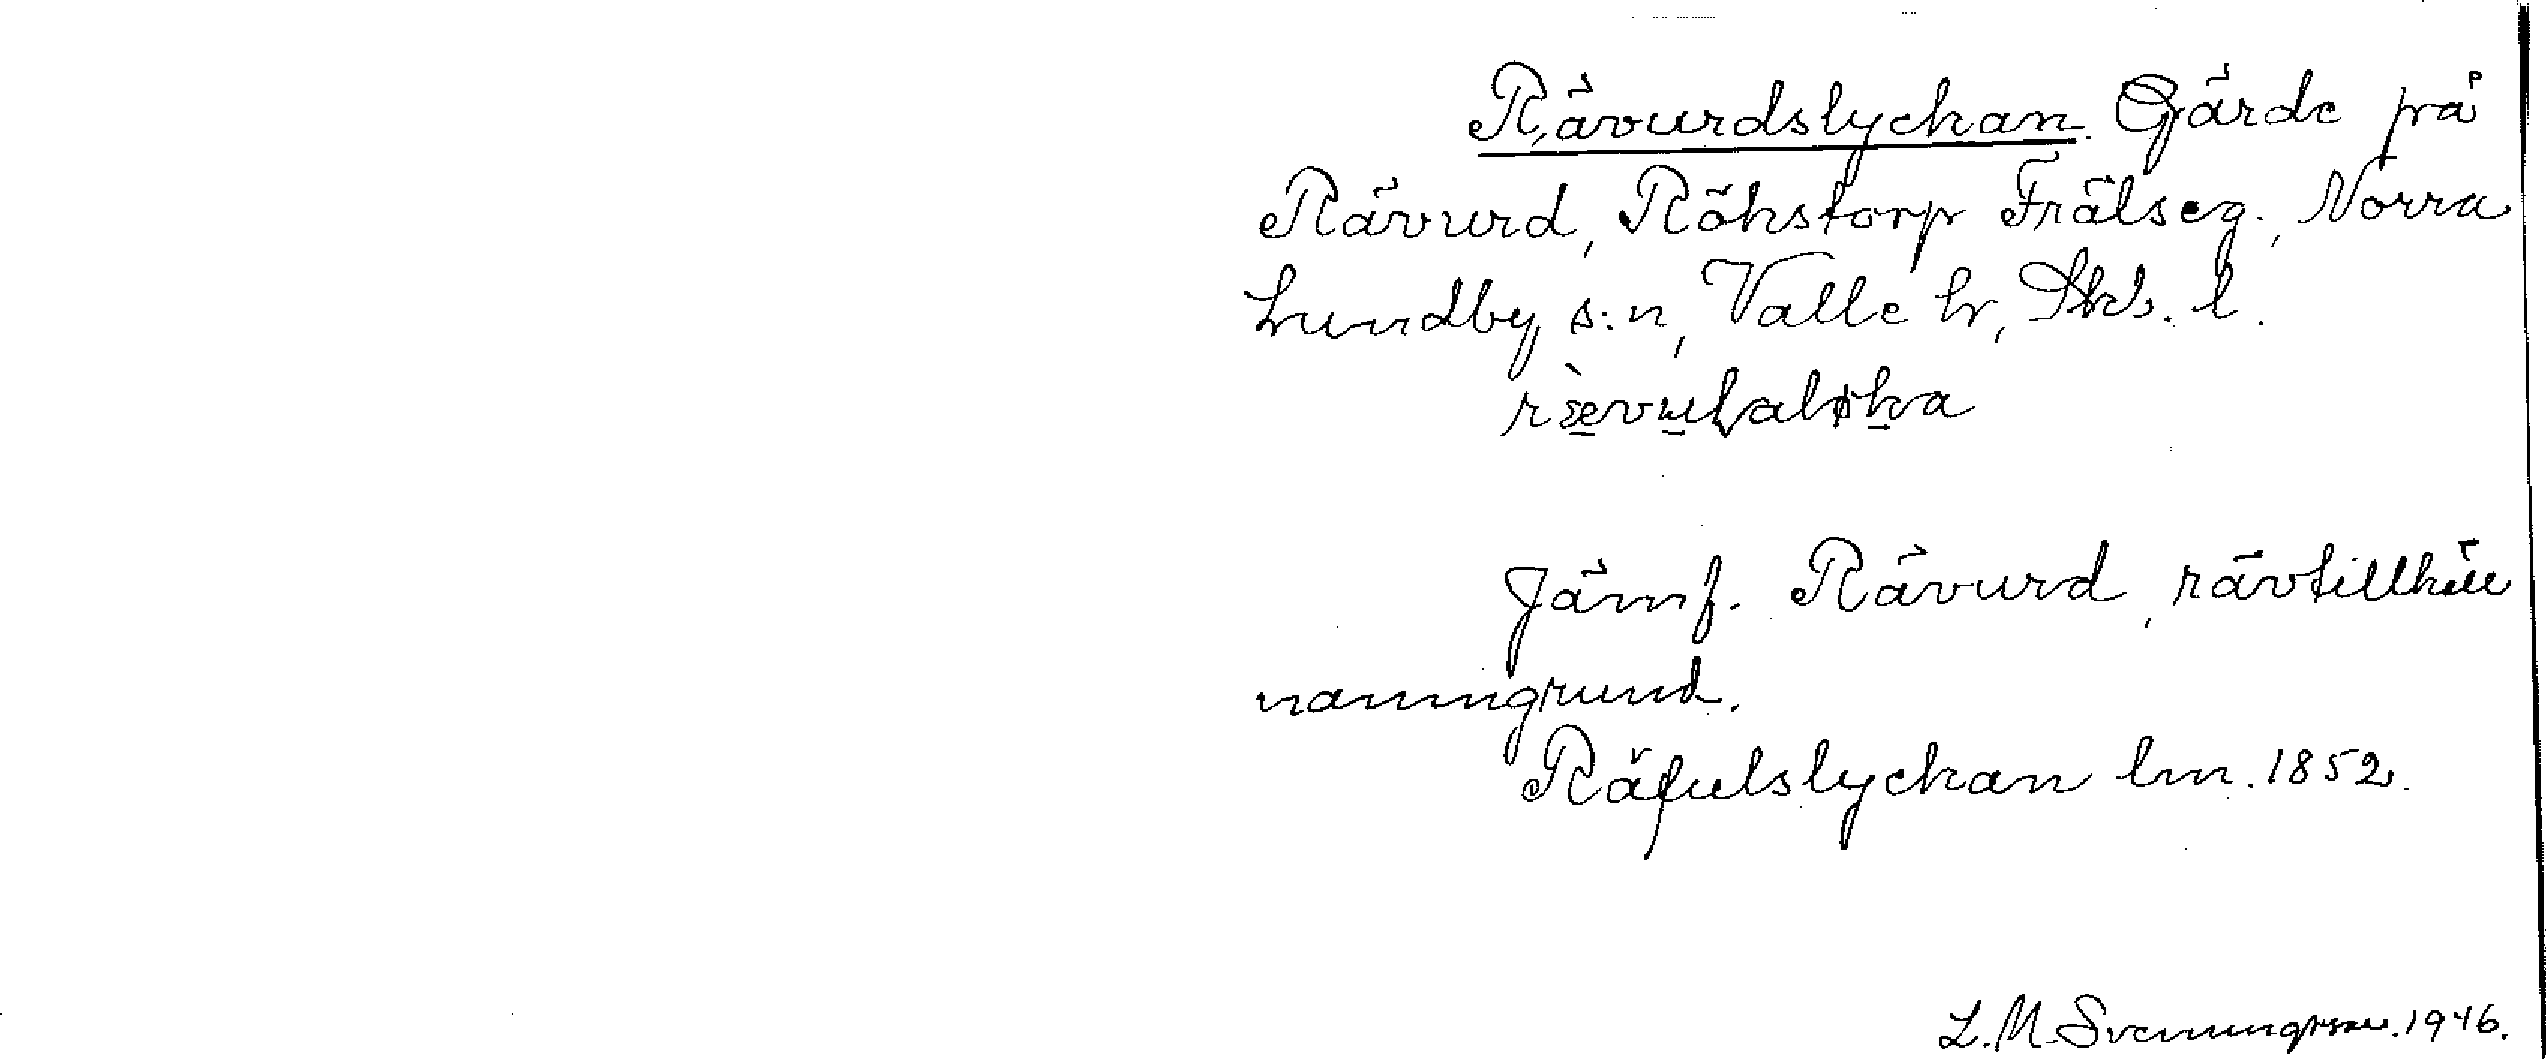 Rävurdslyckan. Gärde på
Rävurd, Rökstorp Frälseg., Norra
Lundby s:n, Valle hr, Skb. l.
Jämf. Rävurd, rävtillhåll
namngrund.
Räfulslyckan lm. 1852.
L. M. Svenungsson. 1946.